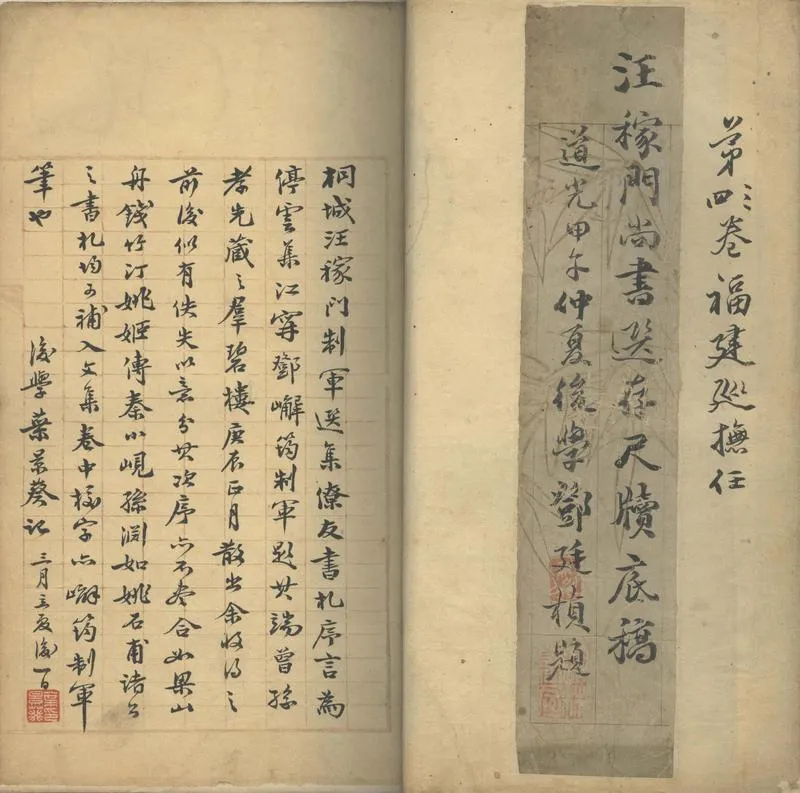 第四三卷福建巡撫任
汪稼門尚書選存尺牘底稿
道光甲午仲夏後學鄧廷楨題
桐城汪稼門制軍選集僚友書札序言為
停雲集江甯鄧嶰筠制軍題其端曾孫
孝先藏之羣碧樓庚辰正月散出余收得之
前後似有佚失以意分其次序亦不盡合如梁山
舟錢竹汀姚姬傳秦小峴孫淵如姚石甫諸公
之書札均可補入文集卷中字亦嶰筠制軍
筆也
後學葉景葵記 立夏後一日三月